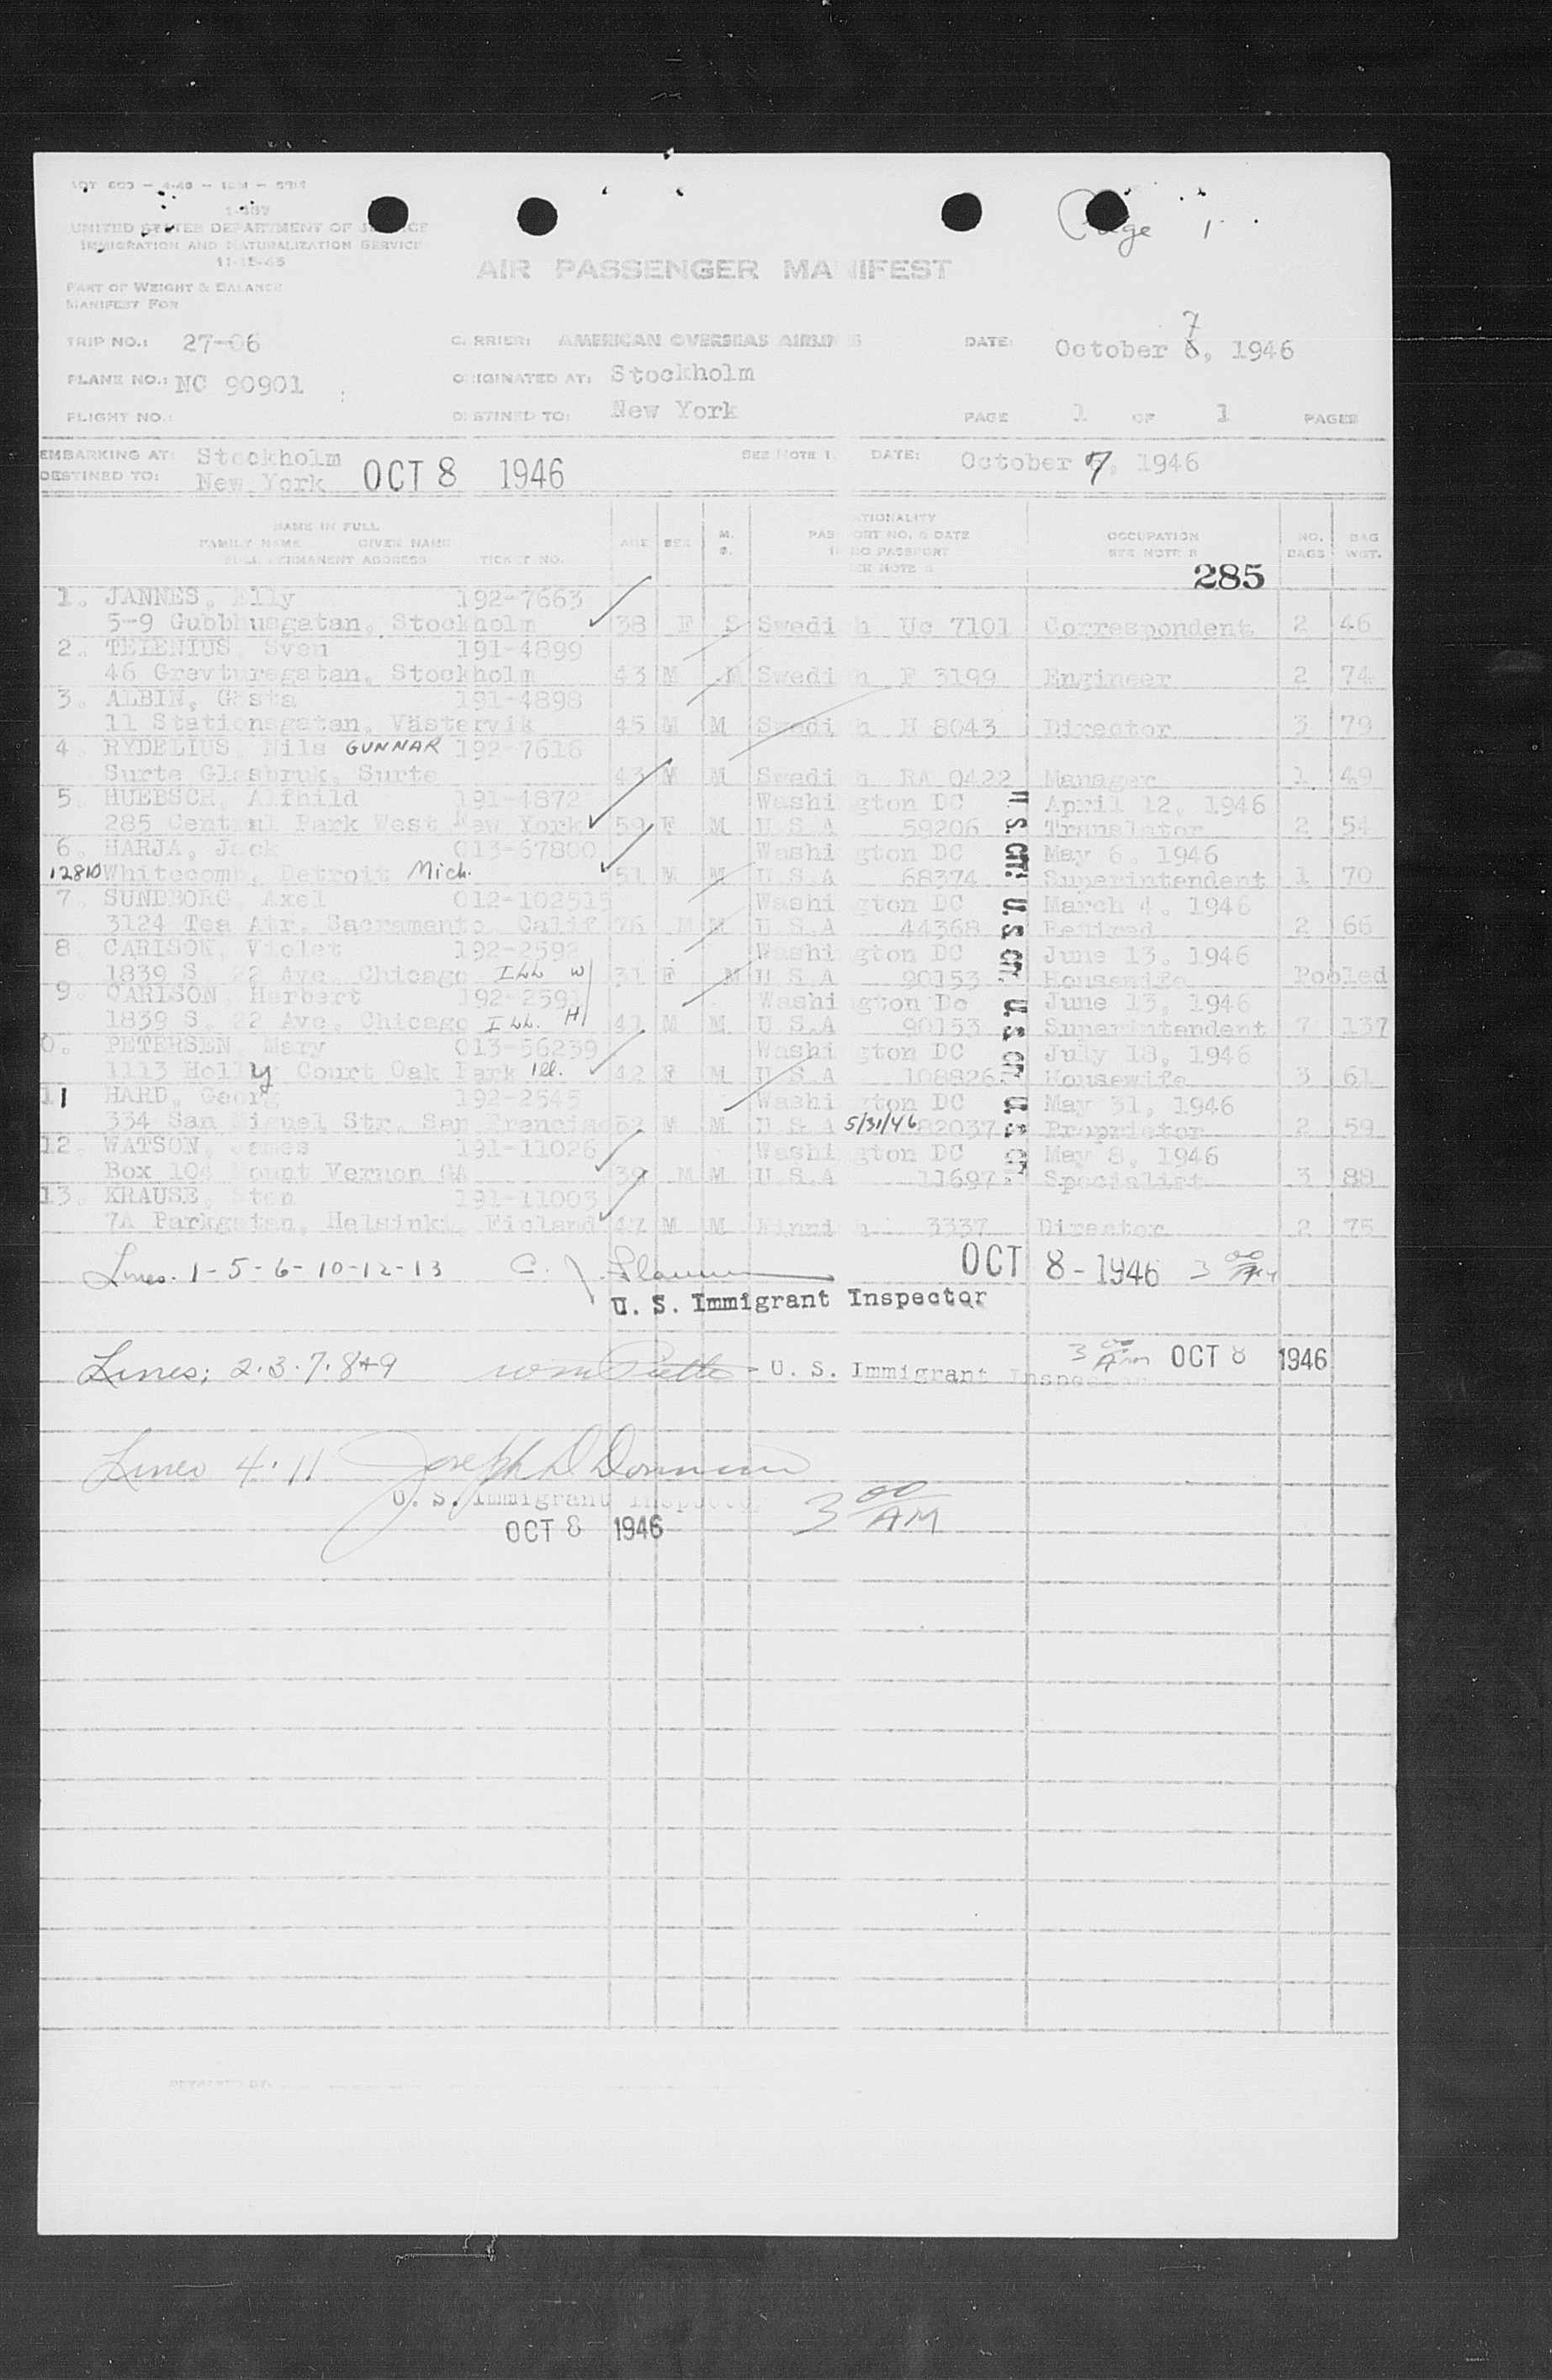 Page 1
1-487
UNITED STATES DEPARTMENT OF JUSTICE
IMMIGRATION AND NATURALIZATION SERVICE
11-15-45
AIR PASSENGER MANIFEST
PART OF WEIGHT & BALANCE
MANIFEST FOR
TRIP NO.: 27-06 CARRIER: AMERICAN OVERSEAS AIRLINES DATE: October 7, 1946
PLANE NO.: NC 90901 ORIGINATED AT: Stockholm
FLIGHT NO.: DESTINED TO: New York PAGE 1 OF 1 PAGES
EMBARKING AT: Stockholm SEE NOTE 1. DATE: October 7, 1946
DESTINED TO: New York OCT 8 1946
NAME IN FULL
FAMILY NAME GIVEN NAME
FULL PERMANENT ADDRESS TICKET NO. AGE SEX M. S. NATIONALITY PASSPORT NO. & DATE IF NO PASSPORT SEE NOTE OCCUPATION SEE NOTE NO. BAGS BAG WGT.
285
1. JANNES, Elly 192-7663
5-9 Gubbhusgatan, Stockholm 38 F S Swedish Uc 7101 Correspondent 2 46
2. TELENIUS, Sven 191-4899
46 Grevturegatan, Stockholm 43 M M Swedish F 3199 Engineer 2 74
3. ALBIN, Gösta 191-4898
11 Stationsgatan, Västervik 45 M M Swedish H 8043 Director 3 79
4 RYDELIUS, Nils GUNNAR 192-7616
Surte Glasbruk, Surte 43 M M Swedish RA 0422 Manager 1 49
5. HUEBSCH, Alfhild 191-4872 Washington DC April 12, 1946
285 Central Park West New York 59 F M U S A 59206 U.S. CIT. Translator 2 54
6. HARJA, Jack 013-67800 Washington DC May 6, 1946
12810 Whitecomb, Detroit Mich. 51 M M U S.A 68374 Superintendent 1 70
7. SUNDBORG, Axel 012-102515 Washington DC March 4, 1946
3124 Tea Atr, Sacramento, Calif 76 M M U S.A 44368 U.S. CIT. Retired 2 66
8 CARLSON, Violet 192-2592 Washington DC June 13, 1946
1839 S. 22 Ave, Chicago ILL W 31 F M U S A 90153 Housewife Pooled
9. CARLSON, Herbert 192-2591 Washington Dc June 13, 1946
1839 S. 22 Ave, Chicago ILL. H 41 M M U S.A 90153 U.S. CIT. Superintendent 7 137
0. PETERSEN, Mary 013-56239 Washington DC July 18, 1946
1113 Holly Court Oak Park Ill. 42 F M U S.A 108826 Housewife 3 61
11 HARD, Georg 192-2545 Washington DC May 31, 1946
334 San Miguel Str, San Francisc 52 M M U S A 5/31/46 82037 U.S. CIT. Proprietor 2 59
12. WATSON, James 191-11026 Washington DC May 8, 1946
Box 104 Mount Vernon GA 39 M M U S.A 11697 Specialist 3 88
13. KRAUSE, Sten 191-11003
7A Parkgatan, Helsinki, Finland 47 M M Finnish 3337 Director 2 75
Lines. 1-5-6-10-12-13 OCT 8-1946 3 00 AM
U. S. Immigrant Inspector
Lines; 2.3.7.8+9 U. S. Immigrant Inspector 3 00 Am OCT 8 1946
Lines 4.11 Joseph D
U. S. Immigrant Inspector 3 00 AM
OCT 8 1946